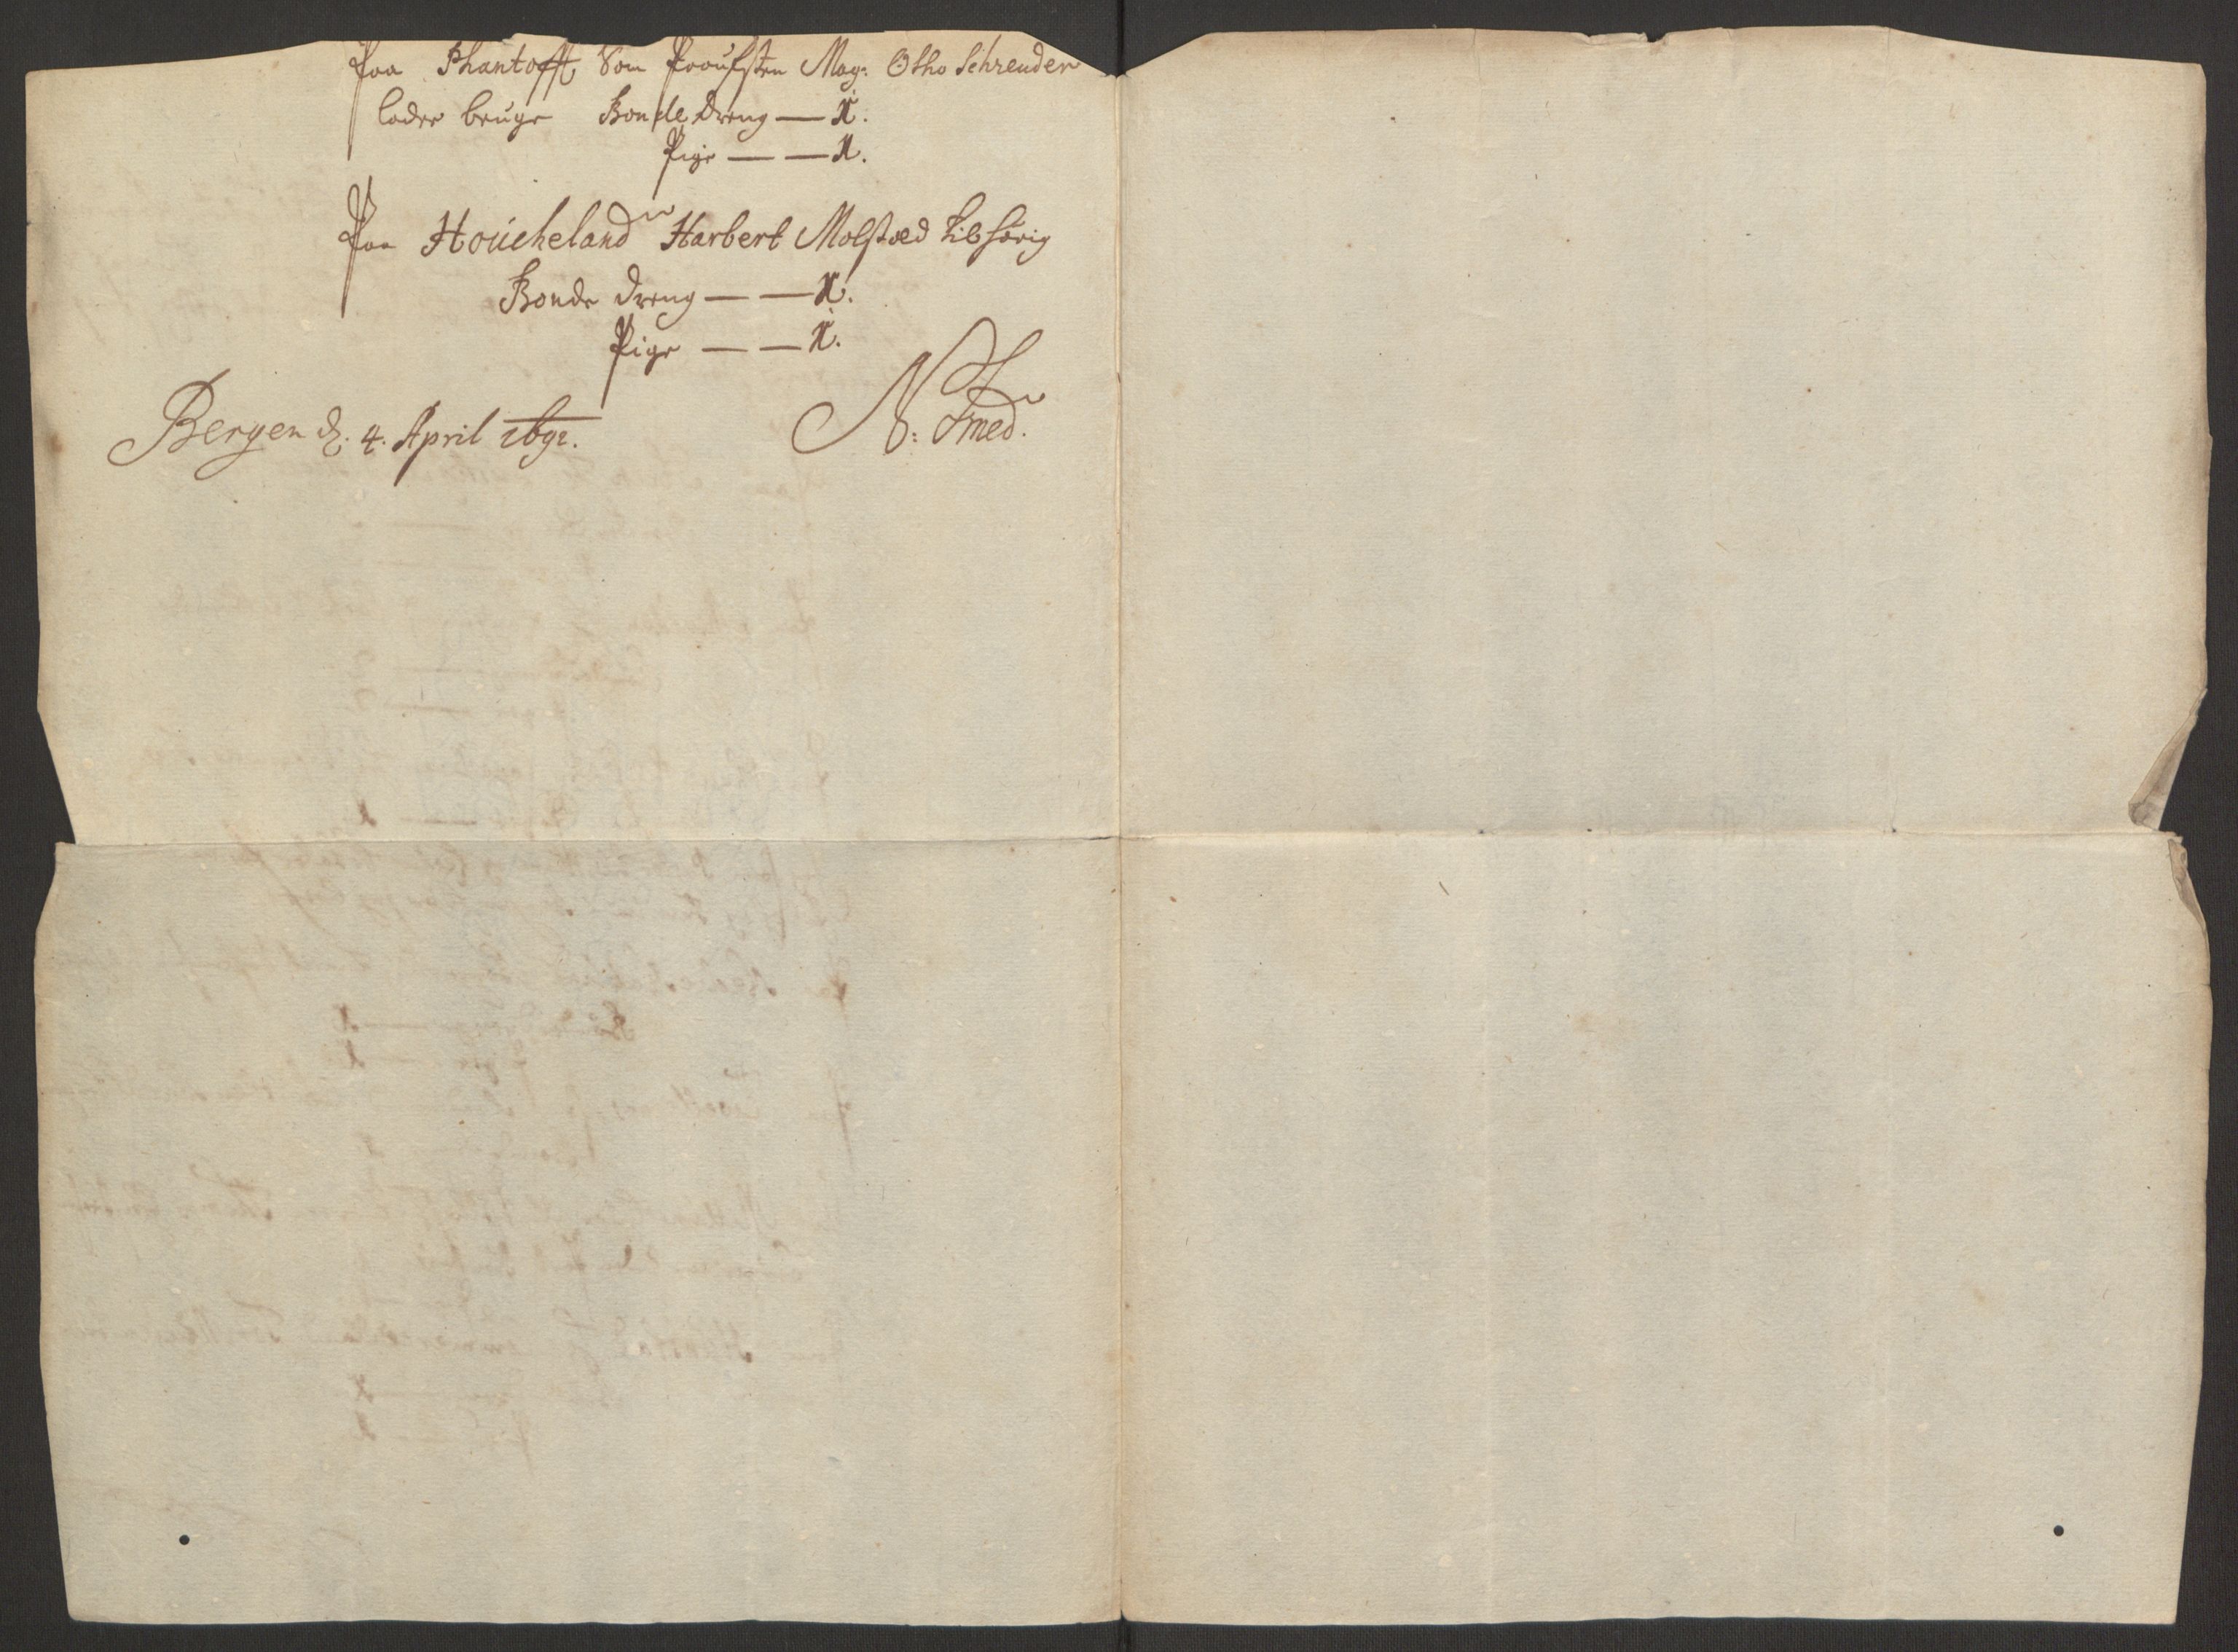 Paa Phantofft Som Proufsten Mag: Otho Schreuder
lader bruge Bonde dreng — 1.
Pige — — 1.
Paa Houcheland Harbert Molstæd tilhörig
Bonde dreng — — 1.
Pige — — 1.
Bergen d. 4. April 1692.
N: Smed.